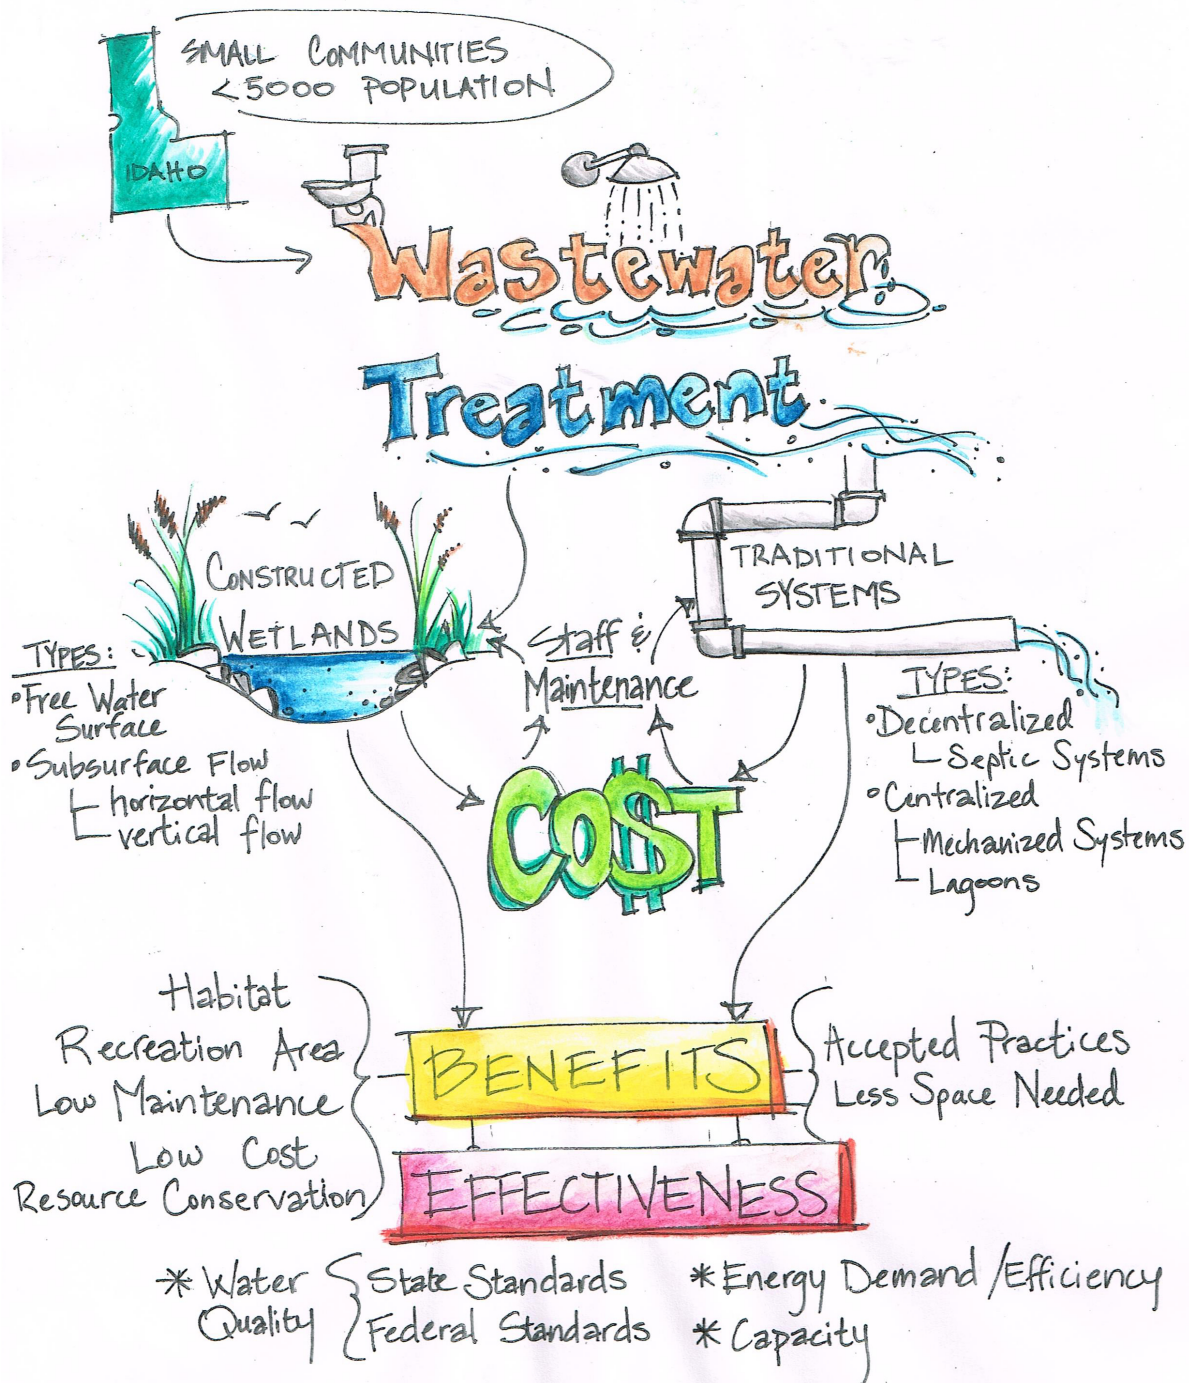 SMALL COMMUNITIES
<5000 POPULATION
IDAHO
Wastewater
Treatment
CONSTRUCTED
WETLANDS
TRADITIONAL
SYSTEMS
Staff &
Maintenance
TYPES:
•Free Water
Surface
•Subsurface Flow
horizontal flow
vertical flow
TYPES:
•Decentralized
Septic Systems
•Centralized
Mechanized Systems
Lagoons
CO$T
Habitat
Recreation Area
Low Maintenance
Low Cost
Resource Conservation
BENEFITS
Accepted Practices
Less Space Needed
EFFECTIVENESS
* Water
Quality
State Standards
Federal Standards
* Energy Demand/Efficiency
* Capacity